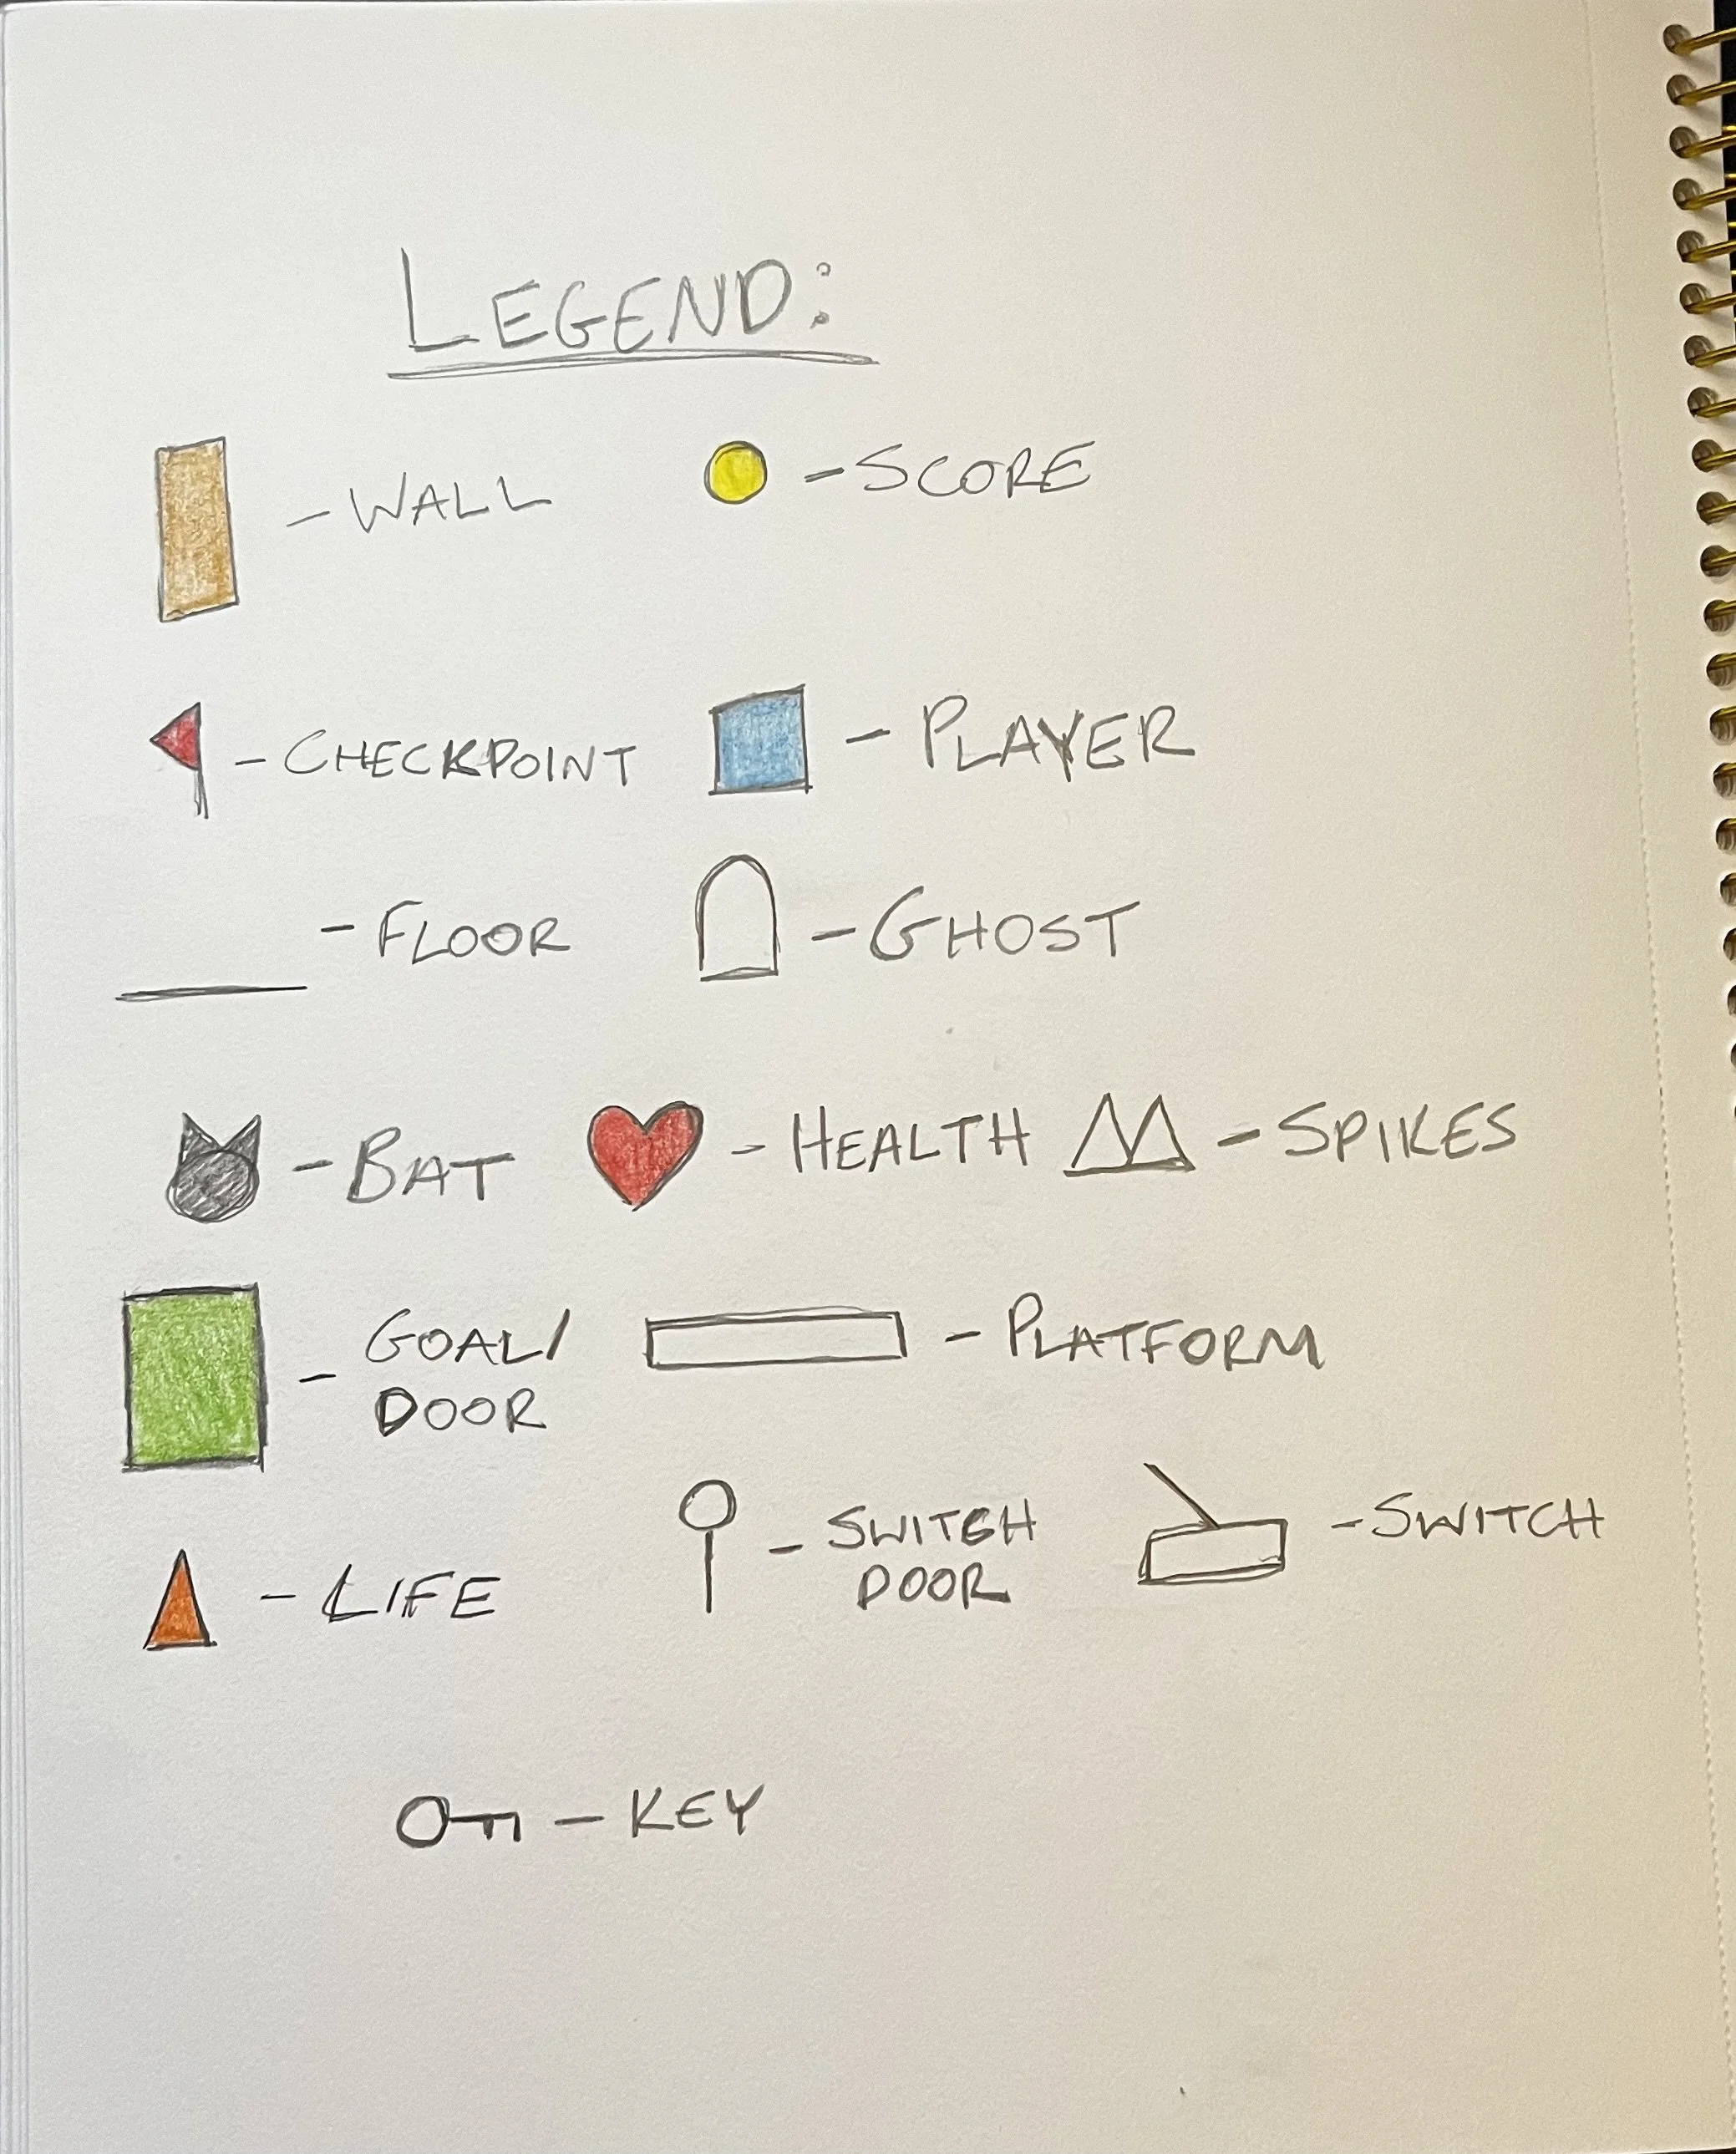 LEGEND:
- WALL
- SCORE
- CHECKPOINT
- PLAYER
- FLOOR
- GHOST
- BAT
- HEALTH
- SPIKES
- GOAL/
DOOR
- PLATFORM
- LIFE
- SWITCH
DOOR
- SWITCH
- KEY